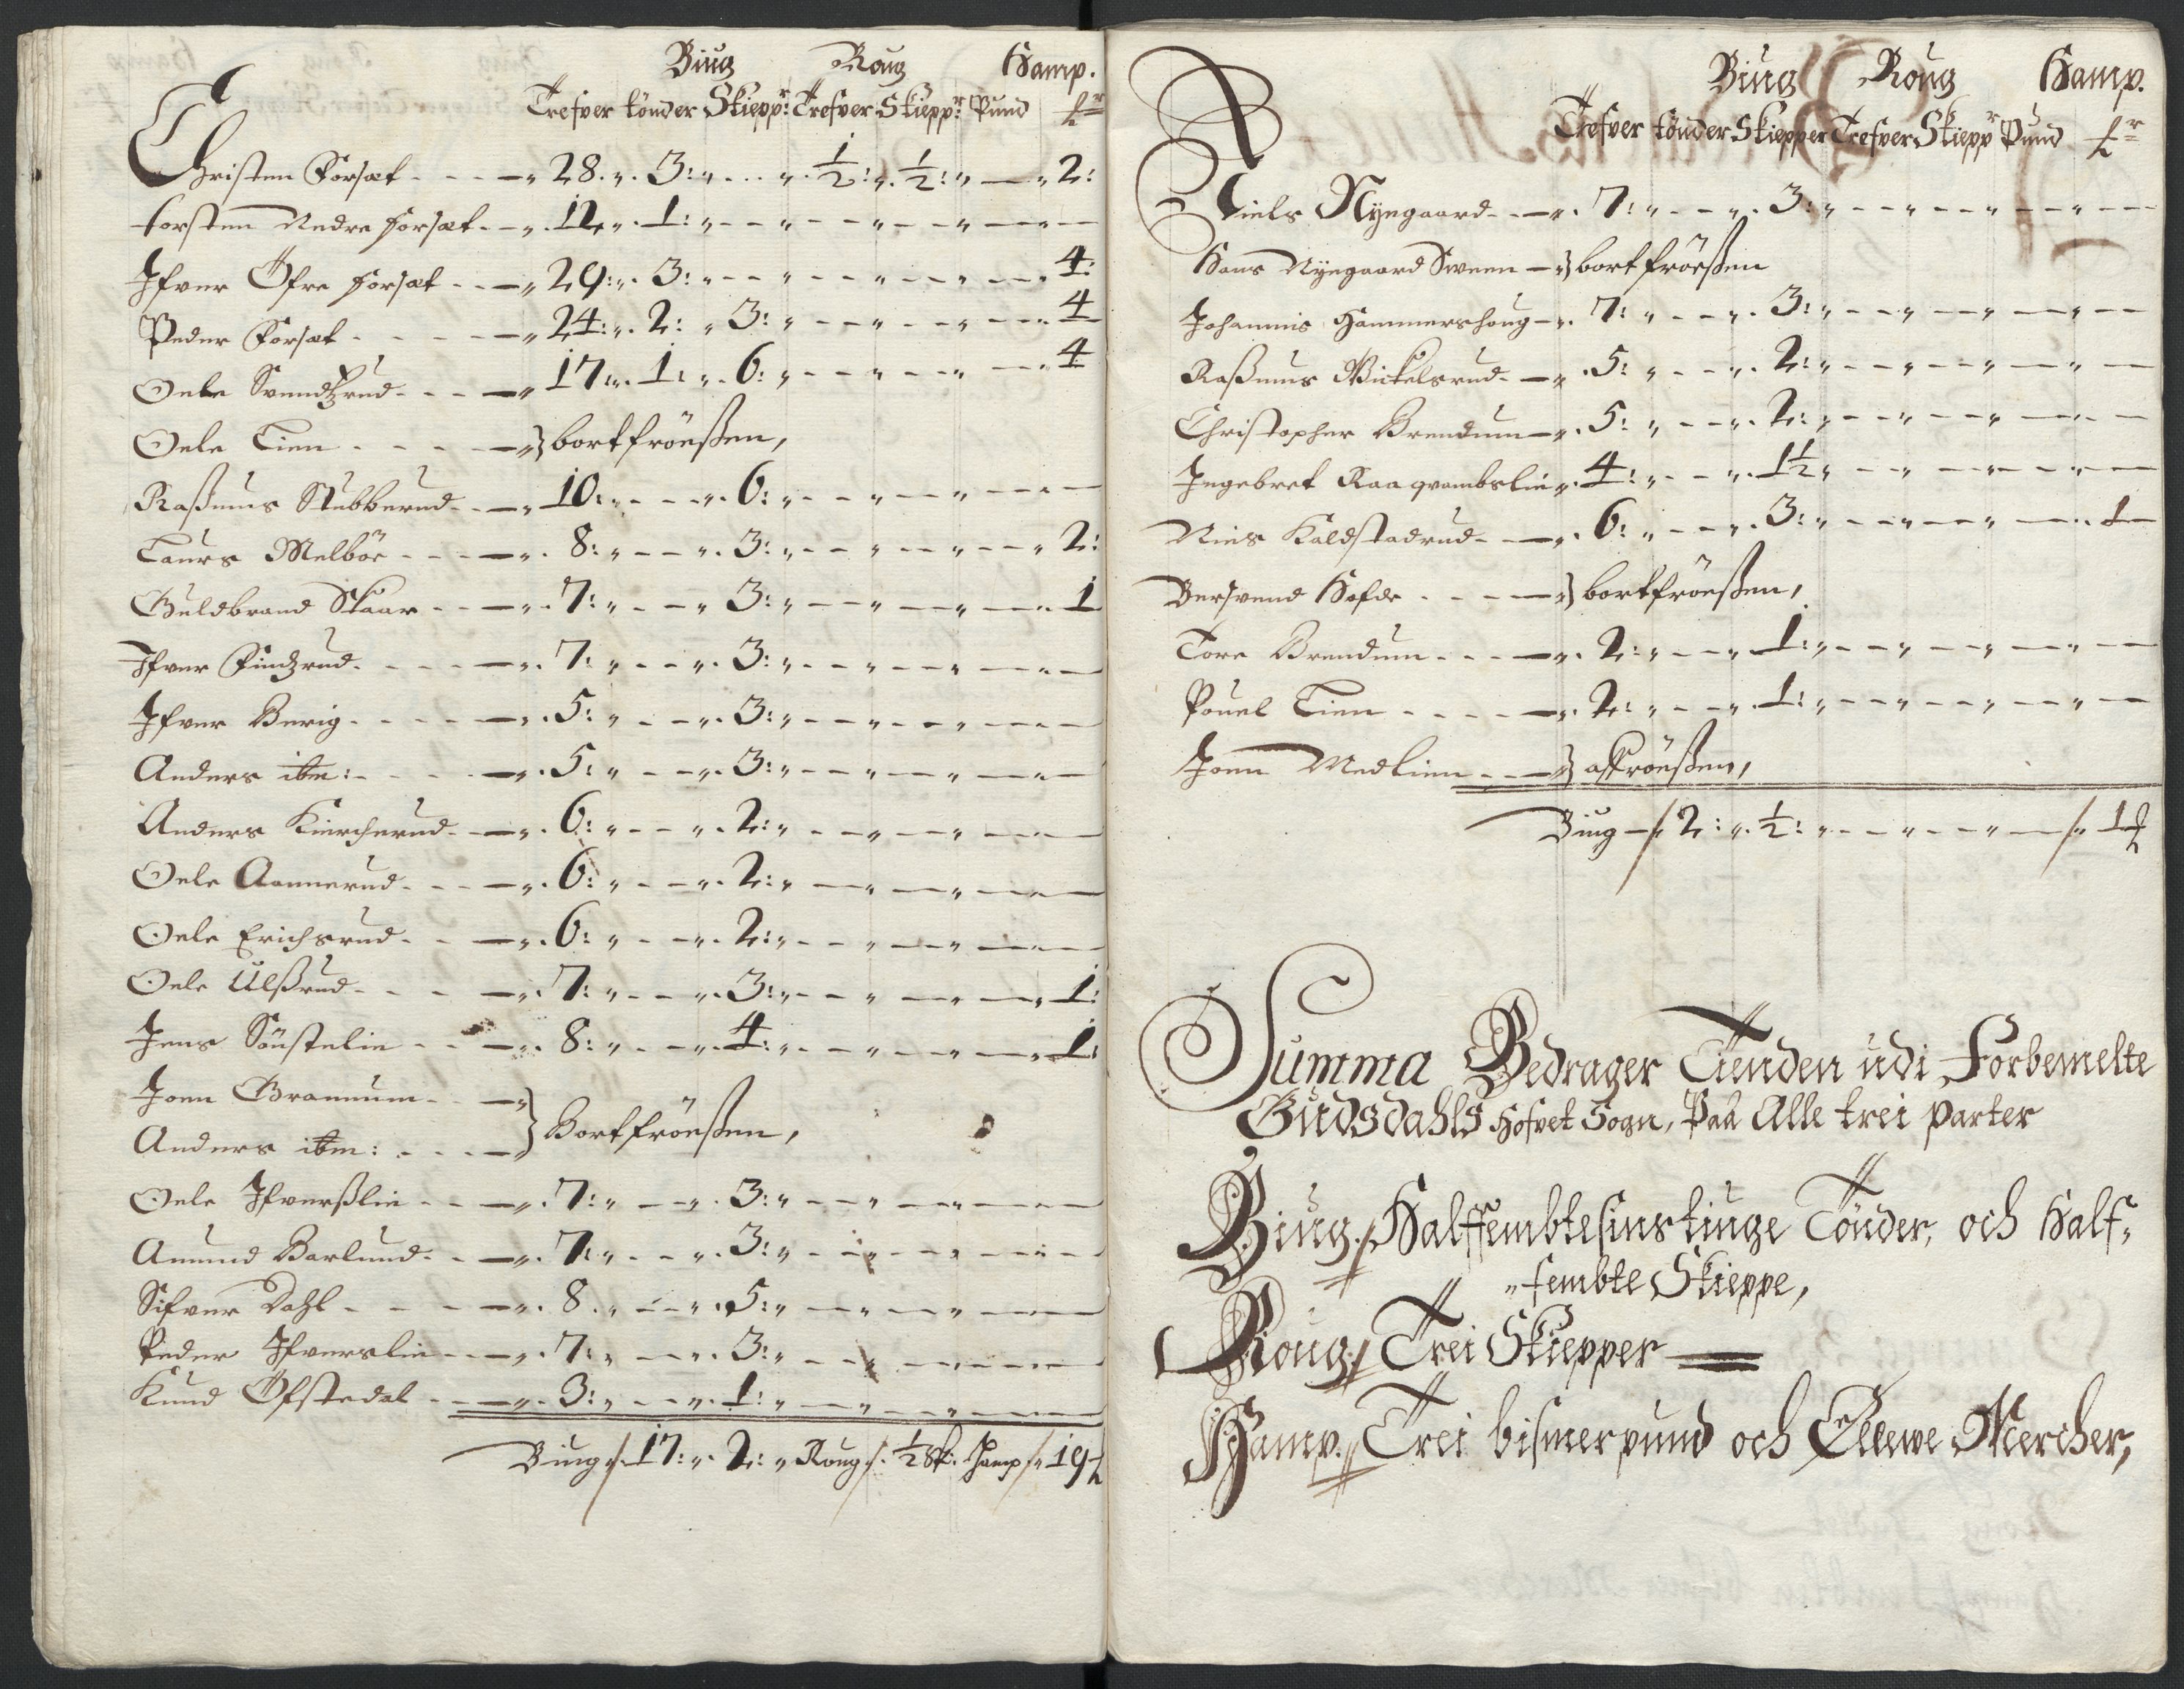 Biug Roug Hamp.
Trefver tönder Skiepp^r: Trefver Skiepp^r: Pund
Christen Forsæt - - - 28. „ 3: „ - - „ ½: „ ½: „ — „ 2:
torsten Nedre forsæt - - 12 „ 1: „
Ifver Öfre forsæt - - 29: „ 3: „ - - - 4:
Peder Forsæt - - - 24: „ 2: „ 3: „ - - - 4
Oele Svendtzrud - - - 17: „ 1: „ 6: „ - - - 4
Oele Lien - - - bortfröeßen,
Raßmus Stubberud - - 10: „ - - „ 6: „
Laurs Melböe - - - 8: „ - - „ 3: „ - - - 2:
Guldbrand Skaar - - 7: „ - - „ 3: „ - - - 1
Ifver Findzrud - - - 7: „ - - „ 3: „
Ifver Berig - - - 5: „ - - „ 3: „
Anders ibm: - - - 5: „ - - „ 3: „
Anders Kiercherud - - 6: „ - - „ 2: „
Oele Aannerud - - - 6: „ - - „ 2: „
Oele Erichsrud - - 6: „ - - „ 2: „
Oele Ulßrud - - - 7: „ - - „ 3: „ - - - 1:
Jens Söustelie - - 8: „ - - „ 4: „ - - - 1:
Joen Gramum - -
Anders ibm: - - - } Bortfröeßen,
Oele Ifverßlie - - 7: „ - - „ 3: „
Amund Barlund - - 7: „ - - „ 3: „
Sifver Dahl - - - 8. „ - - „ 5: „
Peder Ifverslie - - 7: „ - - „ 3: „
Knud Öfstedal - - 3: „ - - „ 1: „
Biug /. 17: „ 2: „ Roug /. ½ Sk: Hamp /. 19
Biug Roug Hamp.
Trefver tönder Skiepper Trefver Skiepp^r Pund
Niels Nyegaard - - 7: „ - - „ 3: „
Hans Nyegaard Sveen - bortfröeßen
Johannis Hammershoug - 7: „ - - „ 3: „
Raßmus Wichelsrud - 5: „ - - „ 2: „
Christopher Brendum - 5: „ - - „ 2: „
Ingebret Raaqvambslie „ 4: „ - - „ 1½ „
Niels Kaldstadrud - - 6: „ - - „ 3: „ - - - 1
Bersvend Hofde - - - bortfröeßen,
Tore Brendum - - - 2: „ - - „ 1: „
Pouel Lien - - - 2: „ - - „ 1: „
Joen Medlien - - - affröeßen,
Biug - /. 2: „ ½: „ - - - /. 1
Summa Bedrager Tienden udi Forbemelte
Gudsdahls Hofvet Sogn, Paa Alle trei parter
Biug /. Halffembtesinstiuge Tönder, och Half„
„fembte Skieppe,
Roug /. Trei Skiepper
Hamp. /. Trei bismerpund och Ellewe Mercher,